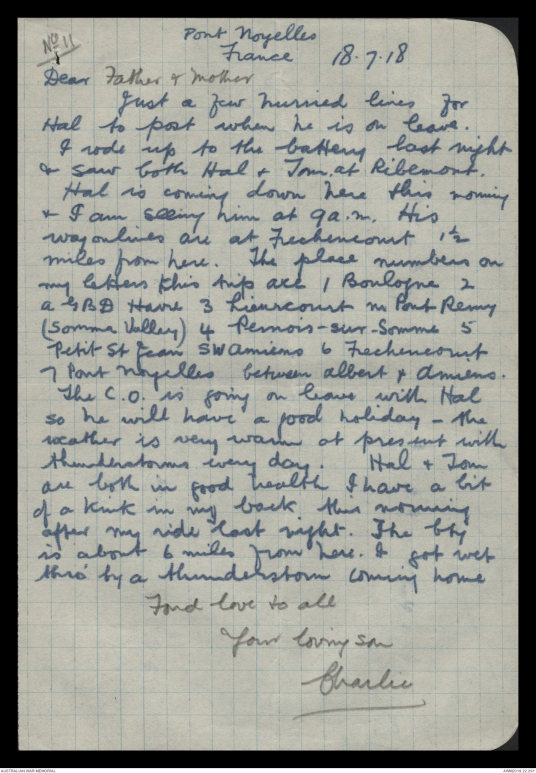 No 11
Pont Noyelles
France 18.7.18
Dear Father & Mother
Just a few hurried lines for
Hal to post when he is on leave.
I rode up to the battery last night
& saw both Hal & Tom at Ribemont.
Hal is coming down here this morning
& I am seeing him at 9 a.m. His
wagonlines are at Frechencourt 1½
miles from here. The place numbers on
my letters this trip are 1 Boulogne 2
a GBD Havre 3 Lieurcourt nr Pont Remy
(Somme Valley) 4 Pernois-sur-Somme 5
Petit St Jean SW Amiens 6 Frechencourt
7 Pont Noyelles between albert & Amiens.
The C.O. is going on leave with Hal
so he will have a good holiday - the
weather is very warm at present with
thunderstorms every day. Hal & Tom
are both in good health I have a bit
of a kink in my back this morning
after my ride last night. The bty
is about 6 miles from here. I got wet
thro' by a thunderstorm coming home
Fond love to all
Your loving son
Charlie
AUSTRALIAN WAR MEMORIAL